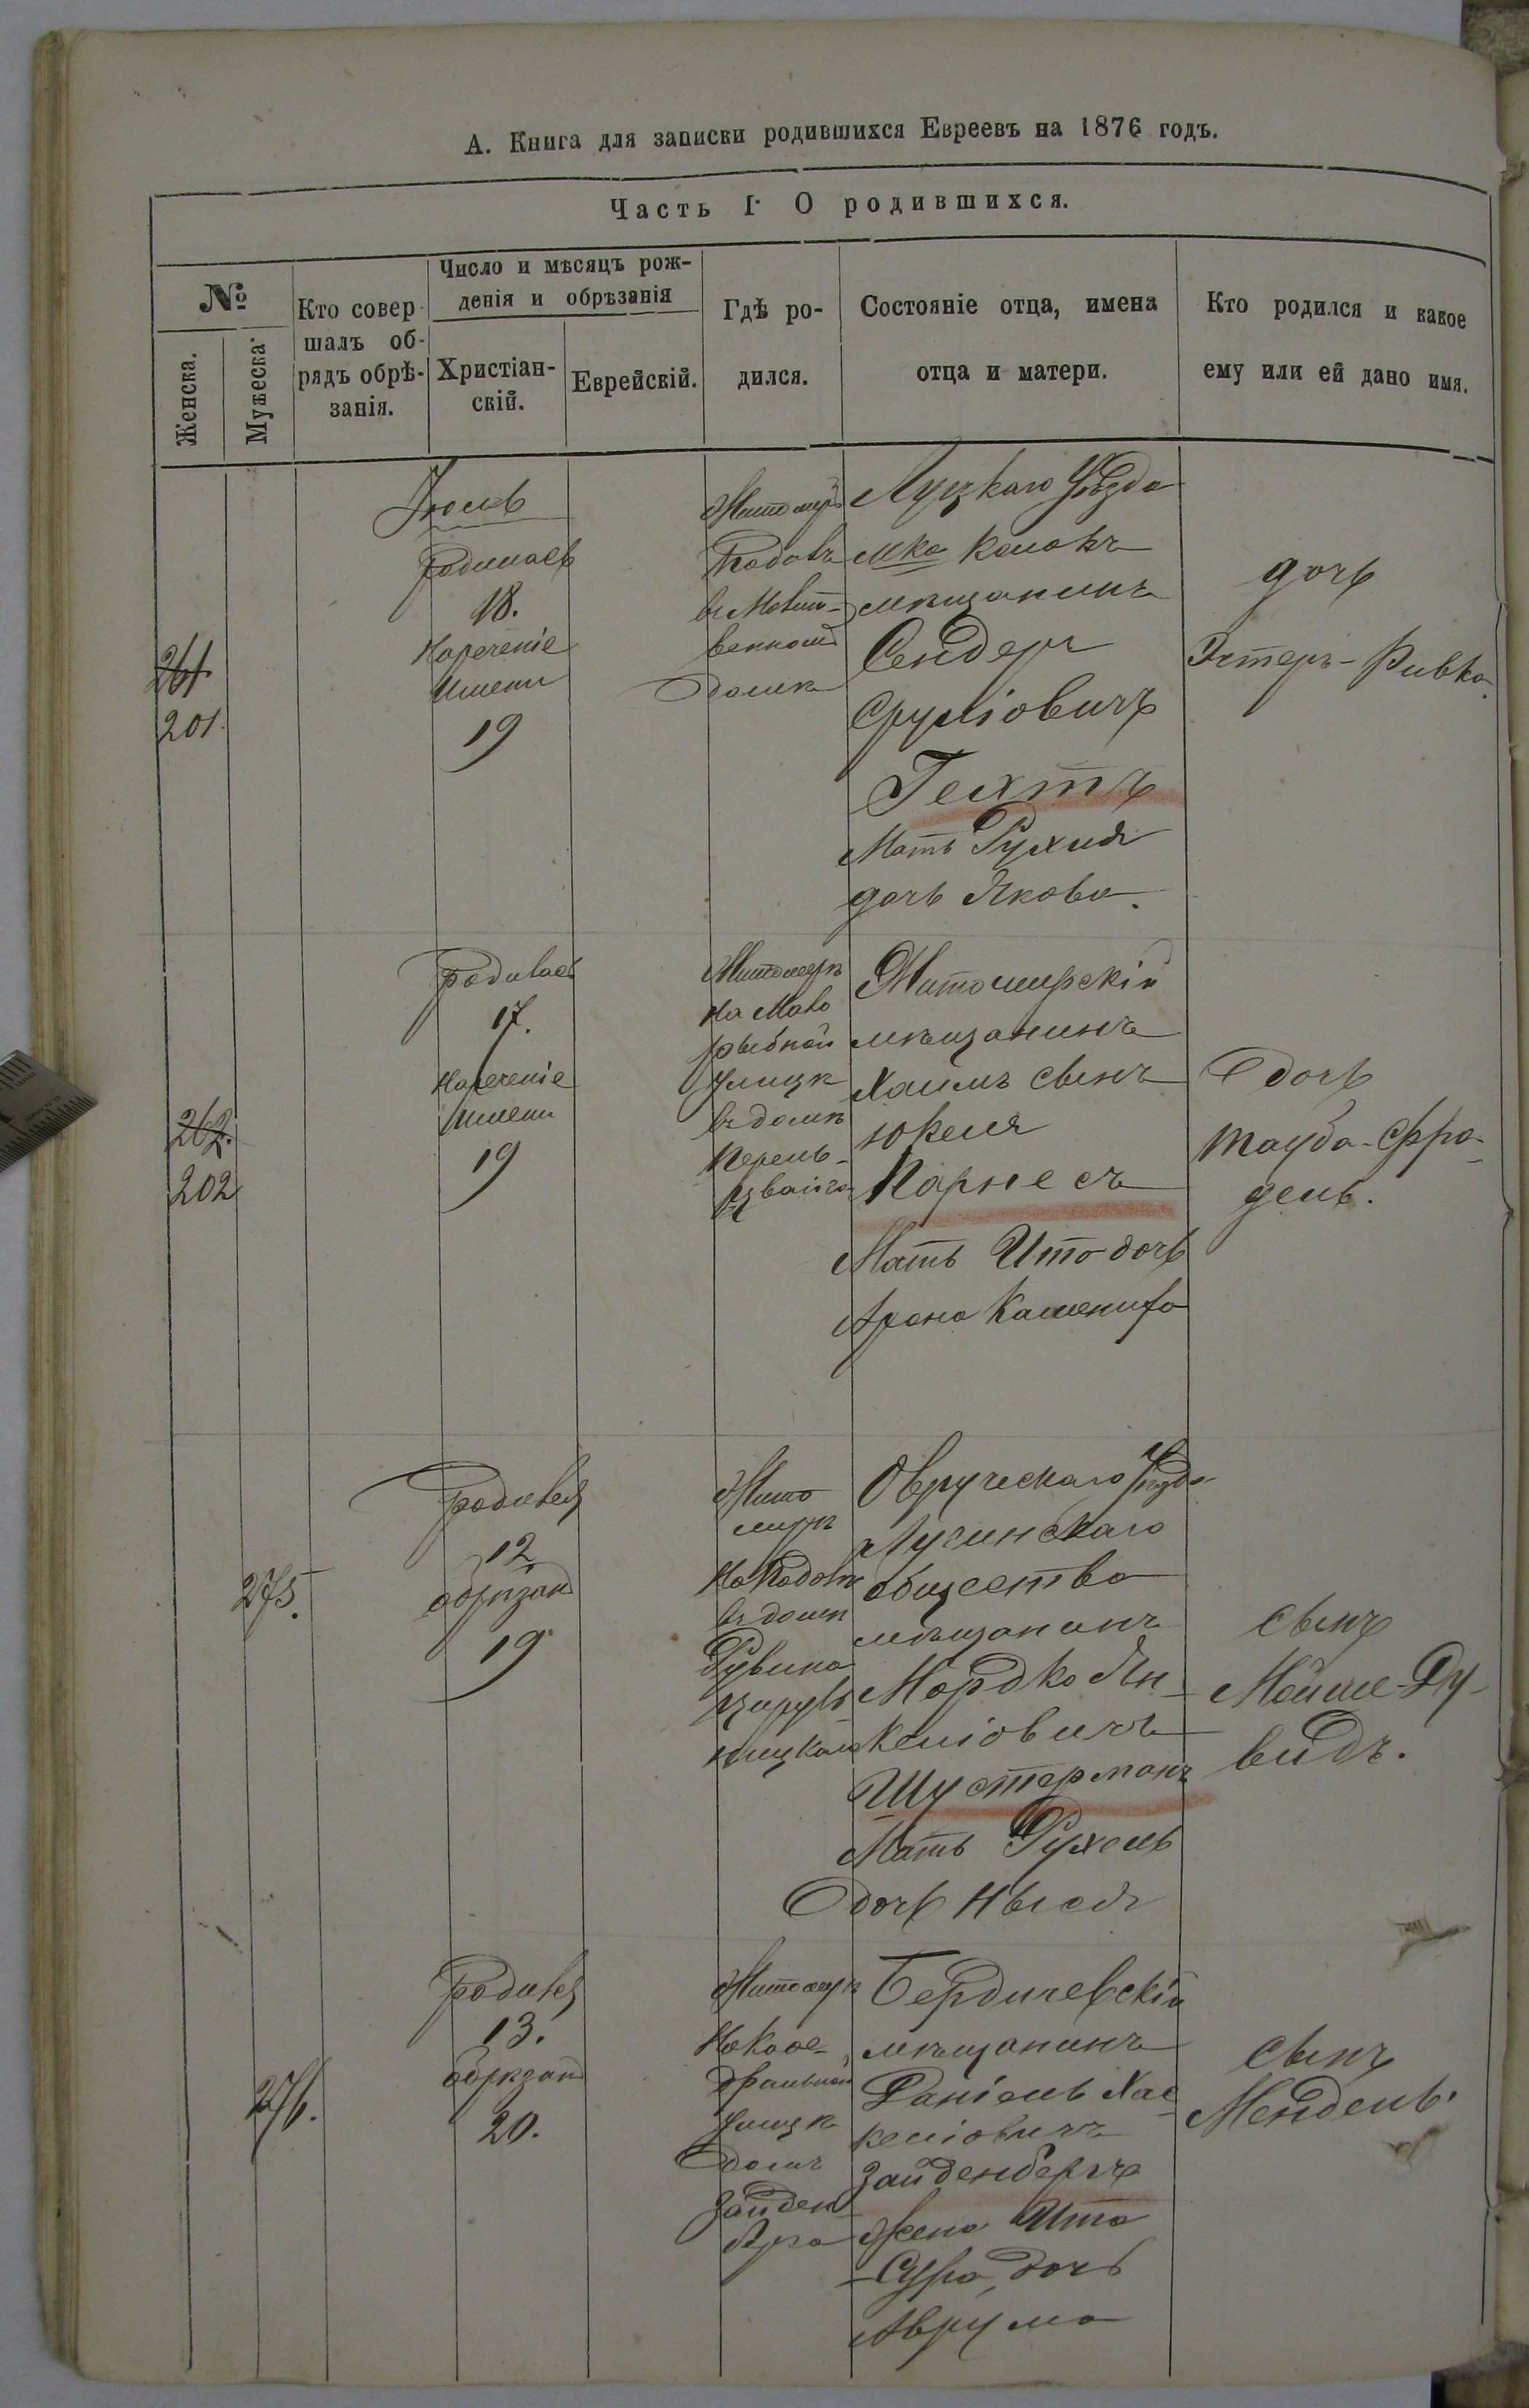 А. Книга для записки родившихся Евреевъ на 1876 годъ.
Часть I. О родившихся.
№
Женска.
Мужеска
Кто совер-
шалъ об-
рядъ обрѣ-
занія.
Число и мѣсяцъ рож-
денія и обрѣзанія
Христіан-
скій.
Еврейскій.
Гдѣ ро-
дился.
Состояніе отца, имена
отца и матери.
Кто родился и какое
ему или ей дано имя.
261.
201.
Іюль
Родилась
18.
Нареченіе
Имени
19
Житомиръ
домѣ
Луцкаго Уѣзда
мѣщанинъ
Сендеръ
Сруліовичъ
Гехтъ
Мать Рухля
дочь Якова.
дочь
Эстеръ-Ривка.
262.
202
Родилась
17.
Нареченіе
Имени
19
Житомирѣ
На Мало
рыбной
Улицѣ
въ домѣ
Житомирскій
мѣщанинъ
Хаимъ сынъ
Юкеля
Парнесъ
Мать Ита дочь
Арона
дочь
Тауба-Фра-
дель.
275.
Родился
12
обрѣзанъ
19
Жито
мирѣ
въ домѣ
Рувина
Овручскаго Уѣзда
Лугинскаго
общества
мѣщанинъ
Мордко Ян-
келіовичъ
Шустерманъ
Мать Рухель
дочь
сынъ
Мойше-Ду-
видъ.
276.
Родился
13.
обрѣзанъ
20.
Житомирѣ
На Кафе-
дральной
Улицѣ
домъ
Бердичевскій
мѣщанинъ
Даніель Хас-
келіовичъ
Зайденбергъ
Жена Ита
-Сура, дочь
Аврума
сынъ
Мендель.